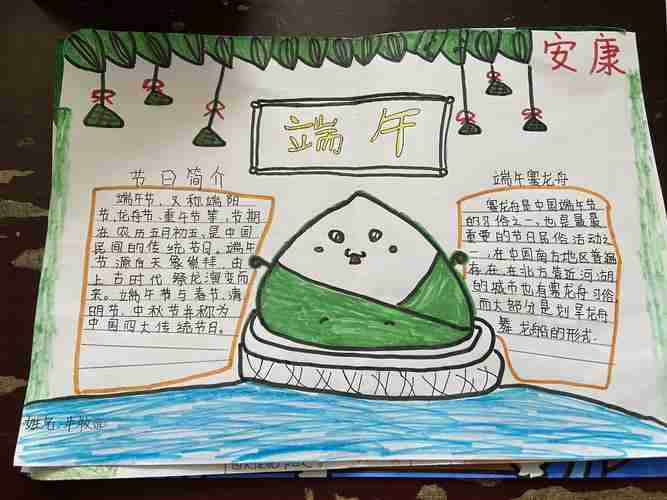 安康
端午
节日简介
端午节，又称端阳
节、龙舟节、重午节等，节期
在农历五月初五，是中国
民间的传统节日。端午
节源自天象崇拜，由
上古时代祭龙演变而
来。端午节与春节、清
明节、中秋节并称为
中国四大传统节日。
端午赛龙舟
赛龙舟是中国端午节
的习俗之一，也是最最
重要的节日民俗活动之
一，在中国南方地区普遍
存在，在北方靠近河湖
的城市也有赛龙舟习俗，
而大部分是划旱龙舟
舞龙船的形式.
姓名：